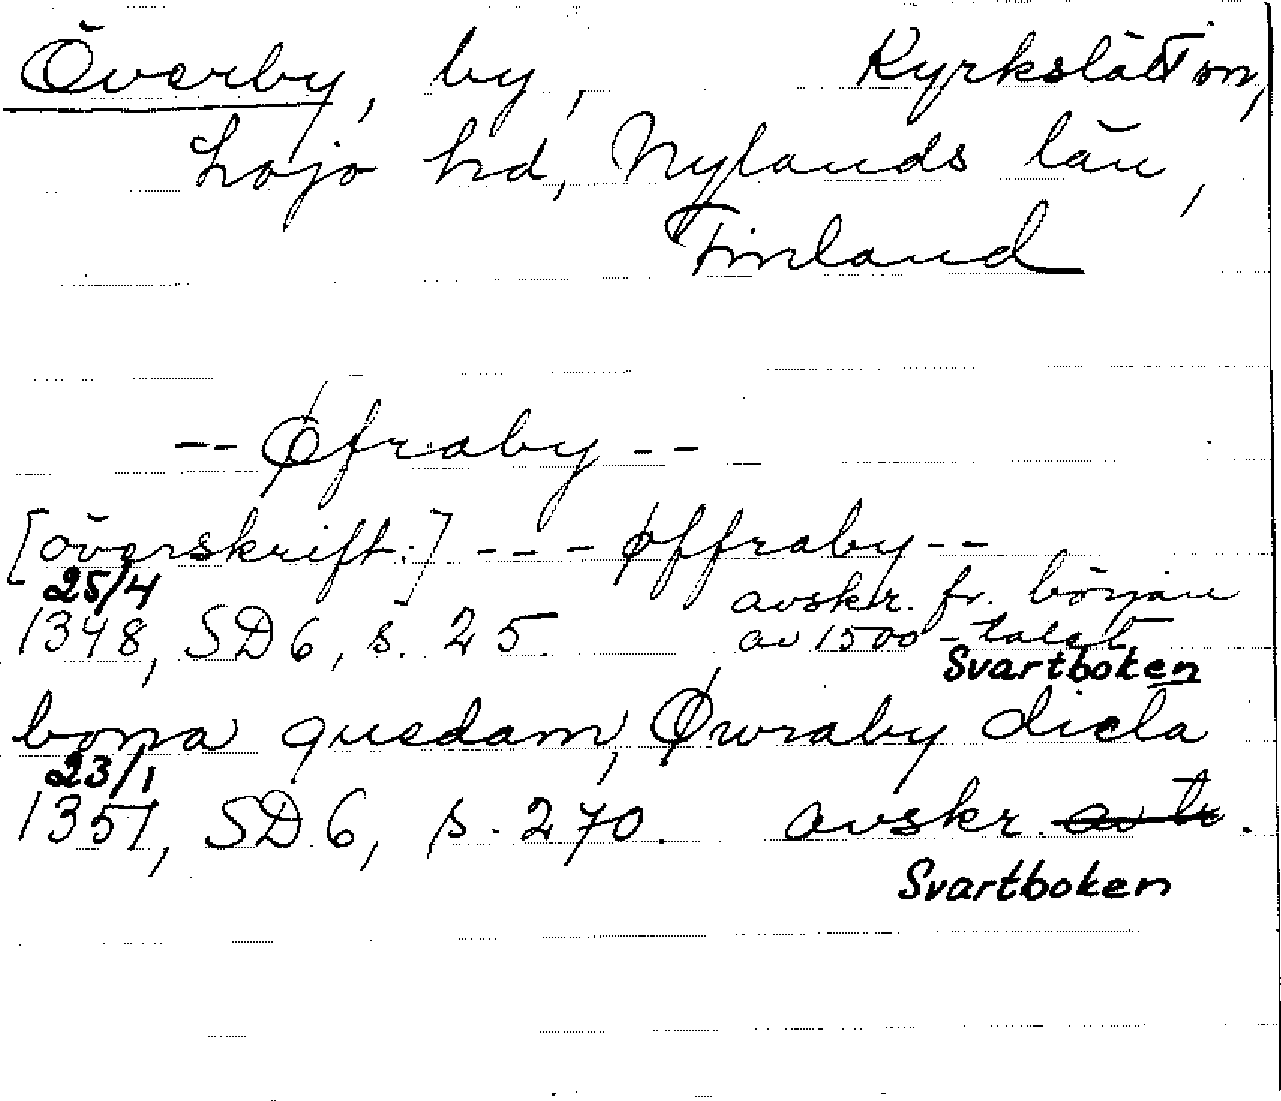 Överby, by, Kyrkslätt sn,
Lojo hd, Nylands län,
Finland
-- Øfraby --
[överskrift:] --- Øffraby --
25/4 avskr. fr. början
1348, SD 6, s. 25. av 1500-talet
Svartboken
bona quedam, Øwraby dicta
23/1
1351, SD 6, s. 270. avskr. av tr.
Svartboken